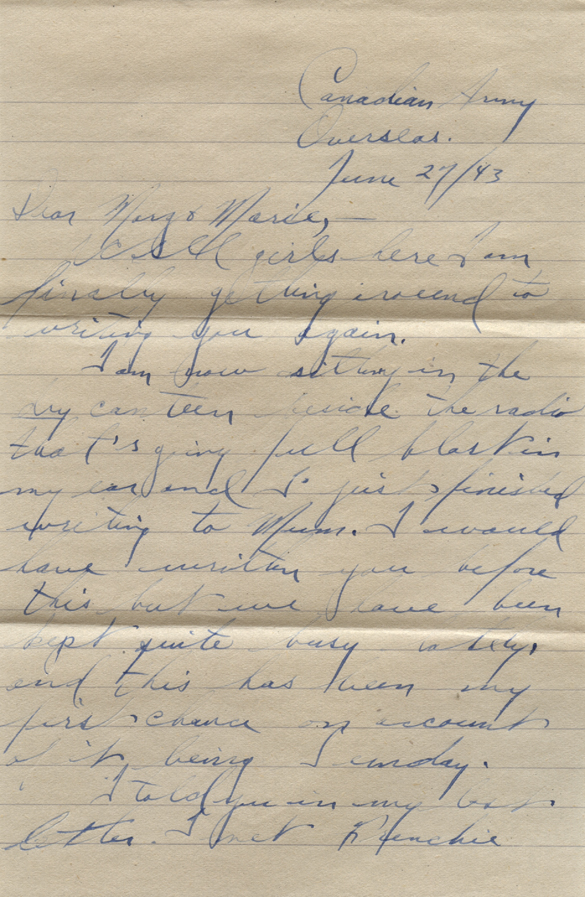 Canadian Army
Overseas.
June 27/43
Dear Marg & Marie,—
Well girls here I am
finally getting around to
writing you again.
I am now sitting in the
dry canteen beside the radio
that's going full blast in
my ear and I just finished
writing to Mum. I would
have written you before
this but we have been
kept quite busy lately,
and this has been my
first chance on account
of it being Sunday.
I told you in my last
letter I met